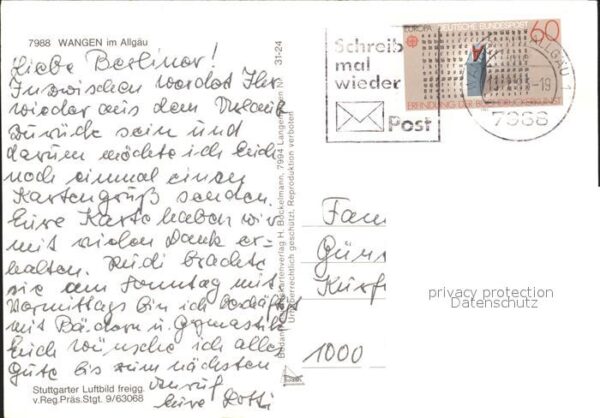 7988 WANGEN im Allgäu
Liebe Berliner!
Inzwischen werdet Ihr
wieder aus dem Urlaub
zurück sein und
darum möchte ich Euch
noch einmal einen
Kartengruß senden.
Eure Karte haben wir
mit vielen Dank er-
halten. Rudi brachte
sie am Sonntag mit.
Vormittags bin ich beschäftigt
mit Bädern u. Gymnastik
Euch wünsche ich alles
Gute bis zum nächsten
Anruf
Eure Dotti
Stuttgarter Luftbild freigg.
v.Reg.Präs.Stgt. 9/63068
31-24
7994 Langenargen Nr.
Ansichtskartenverlag H. Bockelmann,
Urheberrechtlich geschützt. Reproduktion verboten
Schreib
mal
wieder
Post
EUROPA DEUTSCHE BUNDESPOST
60
ERFINDUNG DER BUCHDRUCKERKUNST
ALLGÄU 1
-19
7988
Fam
Gün
Kurf
1000
privacy protection
Datenschutz